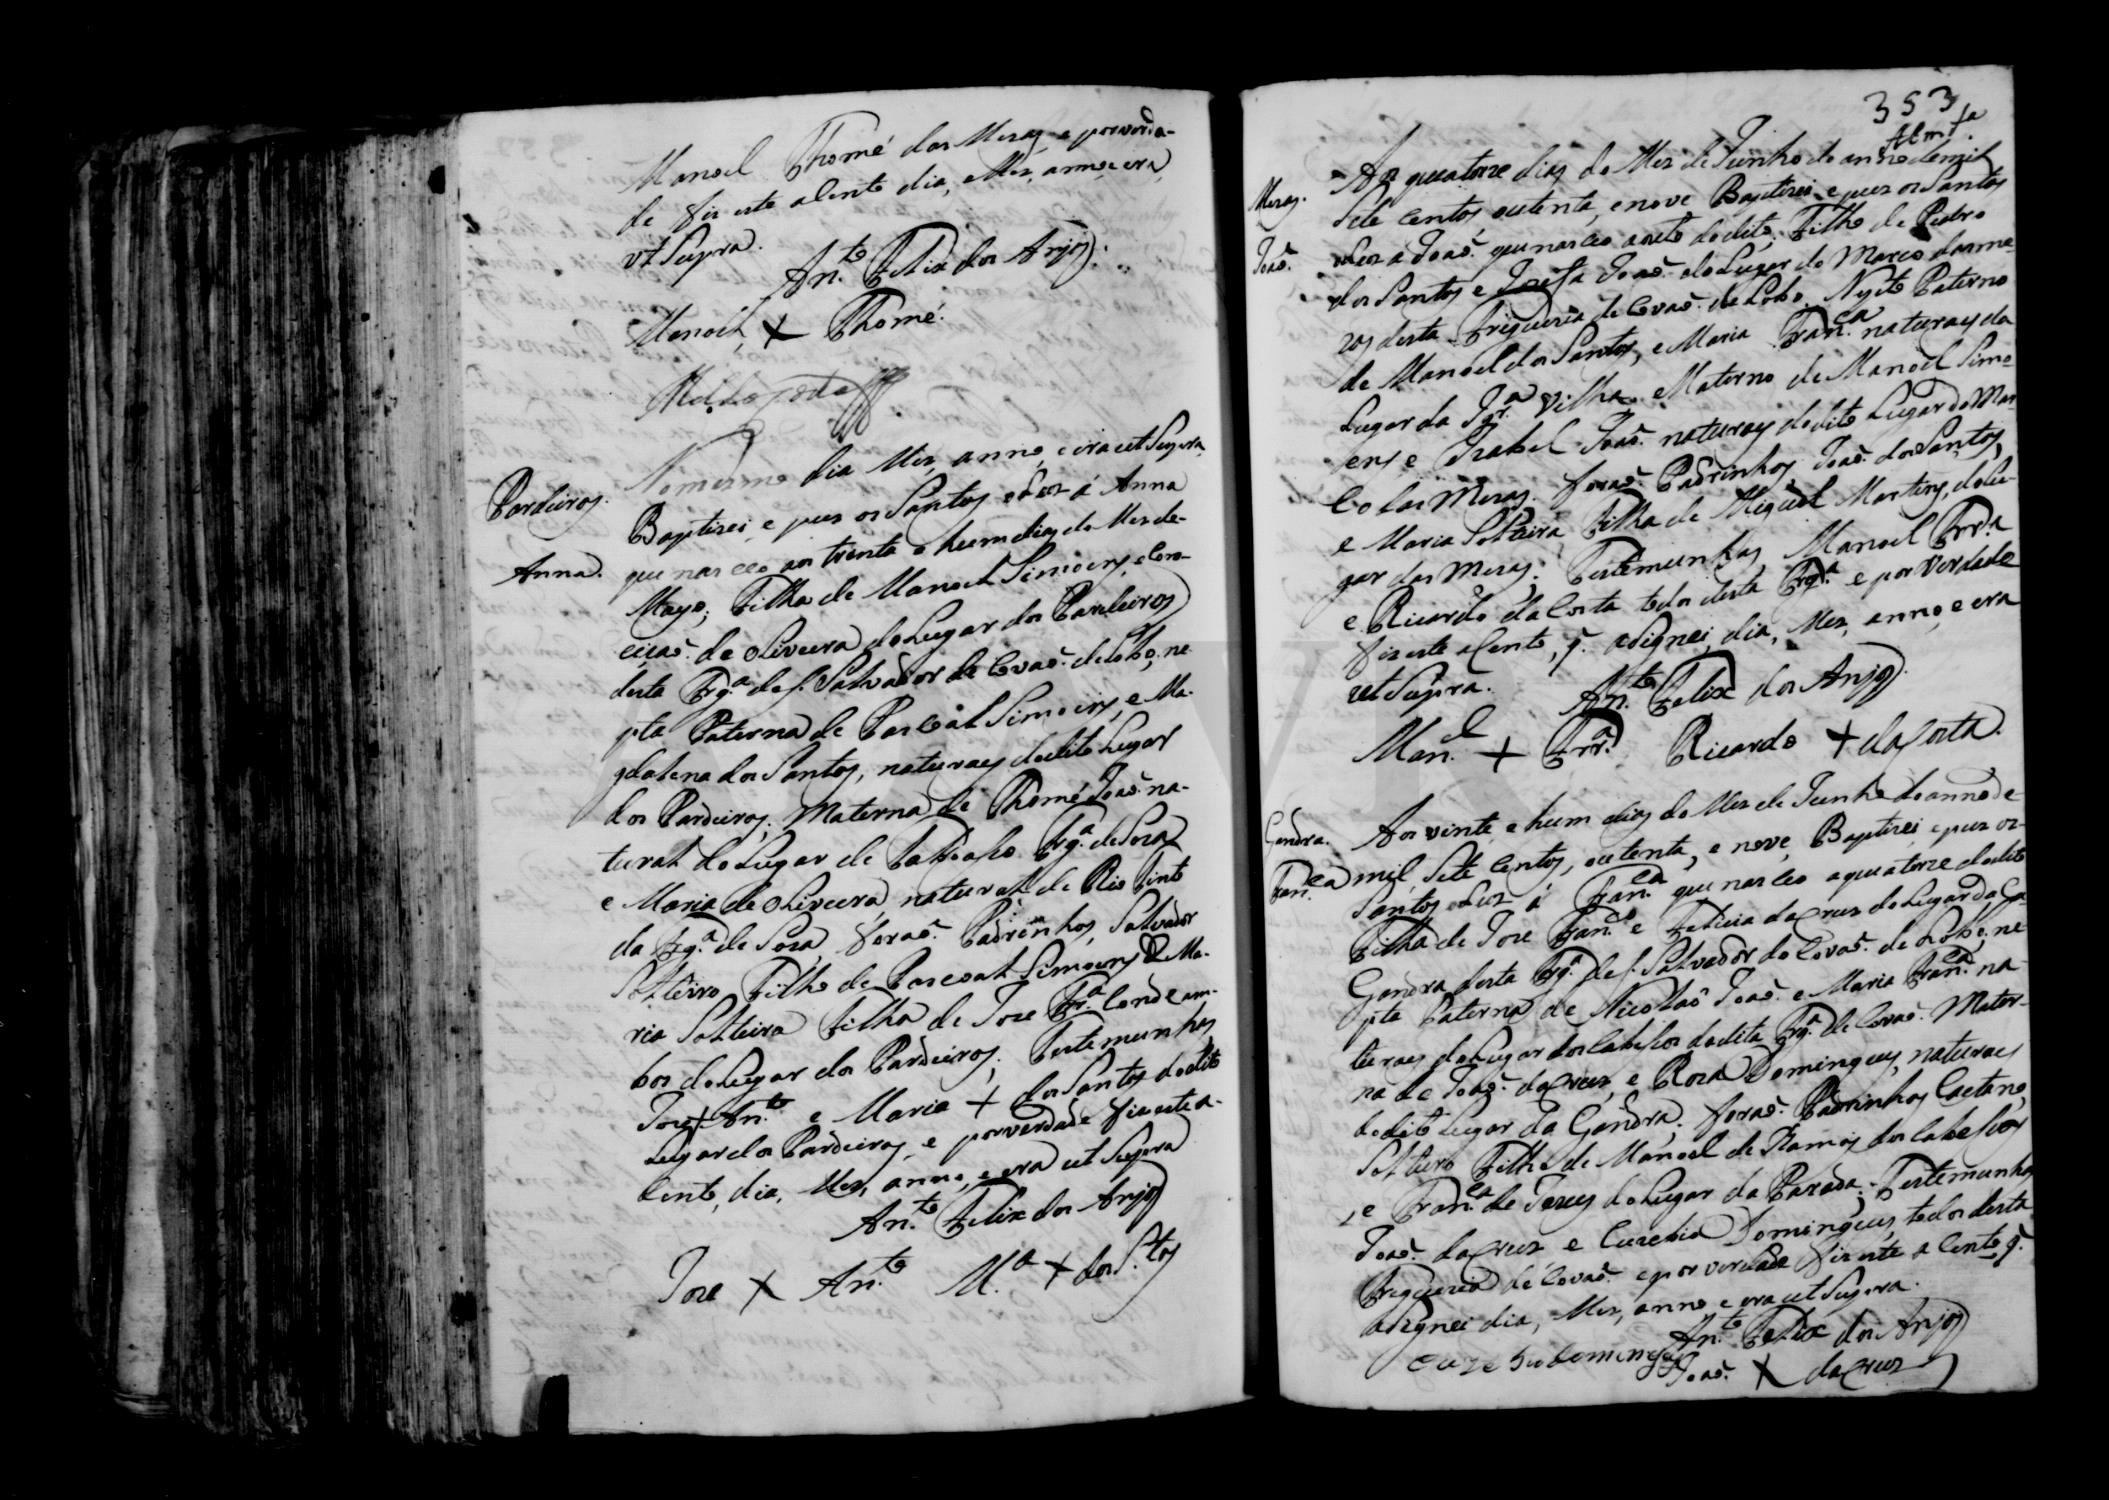 Manoel Thomé das Mesas, e por verda-
de fis este asento dia, e Mes, anno e era
vt Supra.
An.to Felix dos Anjos.
Manoel X Thomé.
Pardeiros.
Anna.
No mesmo dia Mes, anno, e era ut Supra
Baptizei e pus os Santos oleos á Anna
que nasceo aos trenta e hum dias do Mes de-
Mayo; Filha de Manoel Simoens, e Con-
ceicaõ. de oliveira do Lugar dos Pardeiros
desta Frg.a de S. Salvador de Covaõ. de Lobo, ne
pta Paterna de Pascoal Simoens, e Ma-
gdalena dos Santos, naturaes do dito Lugar
dos Pardeiros, Materna de Thomé Joaõ. na-
tural do Lugar de Frg.a de Soza
e Maria de oliveira, natural de Rio tinto
da Frg.a de Soza, foraõ. Padrinhos, Salvador
Solteiro Filho de Pascoal Simoens e Ma-
ria Solteira Filha de Joze Fr.a Conde am-
bos do Lugar dos Pardeiros, Testemunhas
Joze X An.to e Maria X dos Santos do dito
Lugar dos Pardeiros, e por verdade fis este a-
cento, dia, Mes, anno, e era ut Supra
An.to Felix dos Anjos
Joze X An.to M.a X dos S.tos
353
Mesas.
Joaõ.
Aos quatorze dias do Mes de Junho do anno de mil
Sete Centos outenta, e nove Baptizei, e pus os Santos
oleos a Joaõ. que nasceo a oito do dito, Filho de Pedro
dos Santos e Josefa Joaõ. do Lugar do Marco das me-
zas desta Freguezia de Covaõ. de Lobo, Neyto Paterno
de Manoel dos Santos, e Maria Fran.ca naturaes do
Lugar da Igr.a Velha, e Materno de Manoel Simo-
ens e Izabel Joaõ. naturaes do dito Lugar do Mar-
co das Mesas. foraõ. Padrinhos, Joaõ. dos Santos,
e Maria Solteira Filha de Miguel Martins, do Lu-
gar das Mesas; Testemunhas, Manoel Frr.a
e Ricardo da Costa todos desta Frg.a e por Verdade
fis este acento, q. asignei, dia, Mes, anno, e era
ut Supra.
An.to Felix dos Anjos.
Man.el X Frr.a Ricardo X da Costa.
Gandra.
Fran.ca
Aos vinte, e hum dias do Mes de Junho do anno de-
mil Sete Centos, outenta, e nove, Baptizei, e pus os-
Santos oleos á Fran.ca que nasceo a quatorze do dito
Filha de Joze Fran.co e Felicia da Cruz do Lugar da Ga-
Gandra desta Frg.a de S. Salvador do Covaõ. de Lobo, ne
pta Paterna de Nicolao Joaõ. e Maria Fran.ca na-
turaes do Lugar dos Cabessos da dita Frg.a de Covaõ. Mater-
na de Joaõ. da Cruz, e Roza Domingues, naturaes
do dito Lugar da Gandra. foraõ. Padrinhos Caetano
Solteiro Filho de Manoel de Ramos dos Cabessos
, e Fran.ca de Jesus do Lugar da Parada; Testemunhas
Joaõ. da Cruz e Euzebio Domingues, todos desta
Freguezia de Covaõ. e por verdade fis este acento q.
asignei dia, Mes, anno, e era ut Supra.
An.to Felix dos Anjos
Euzebio domingues
Joaõ. X da Cruz